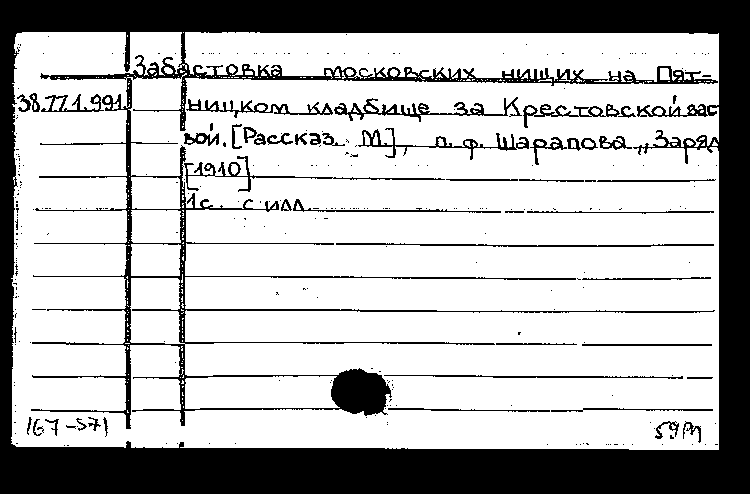 Забастовка московских нищих на Пят-
38.77.1.991. ницком кладбище за Крестовской зас
вой. [Рассказ. М.], п. ф. Шарапова „Заряд
[1910]
1 с. с илл.
167-571